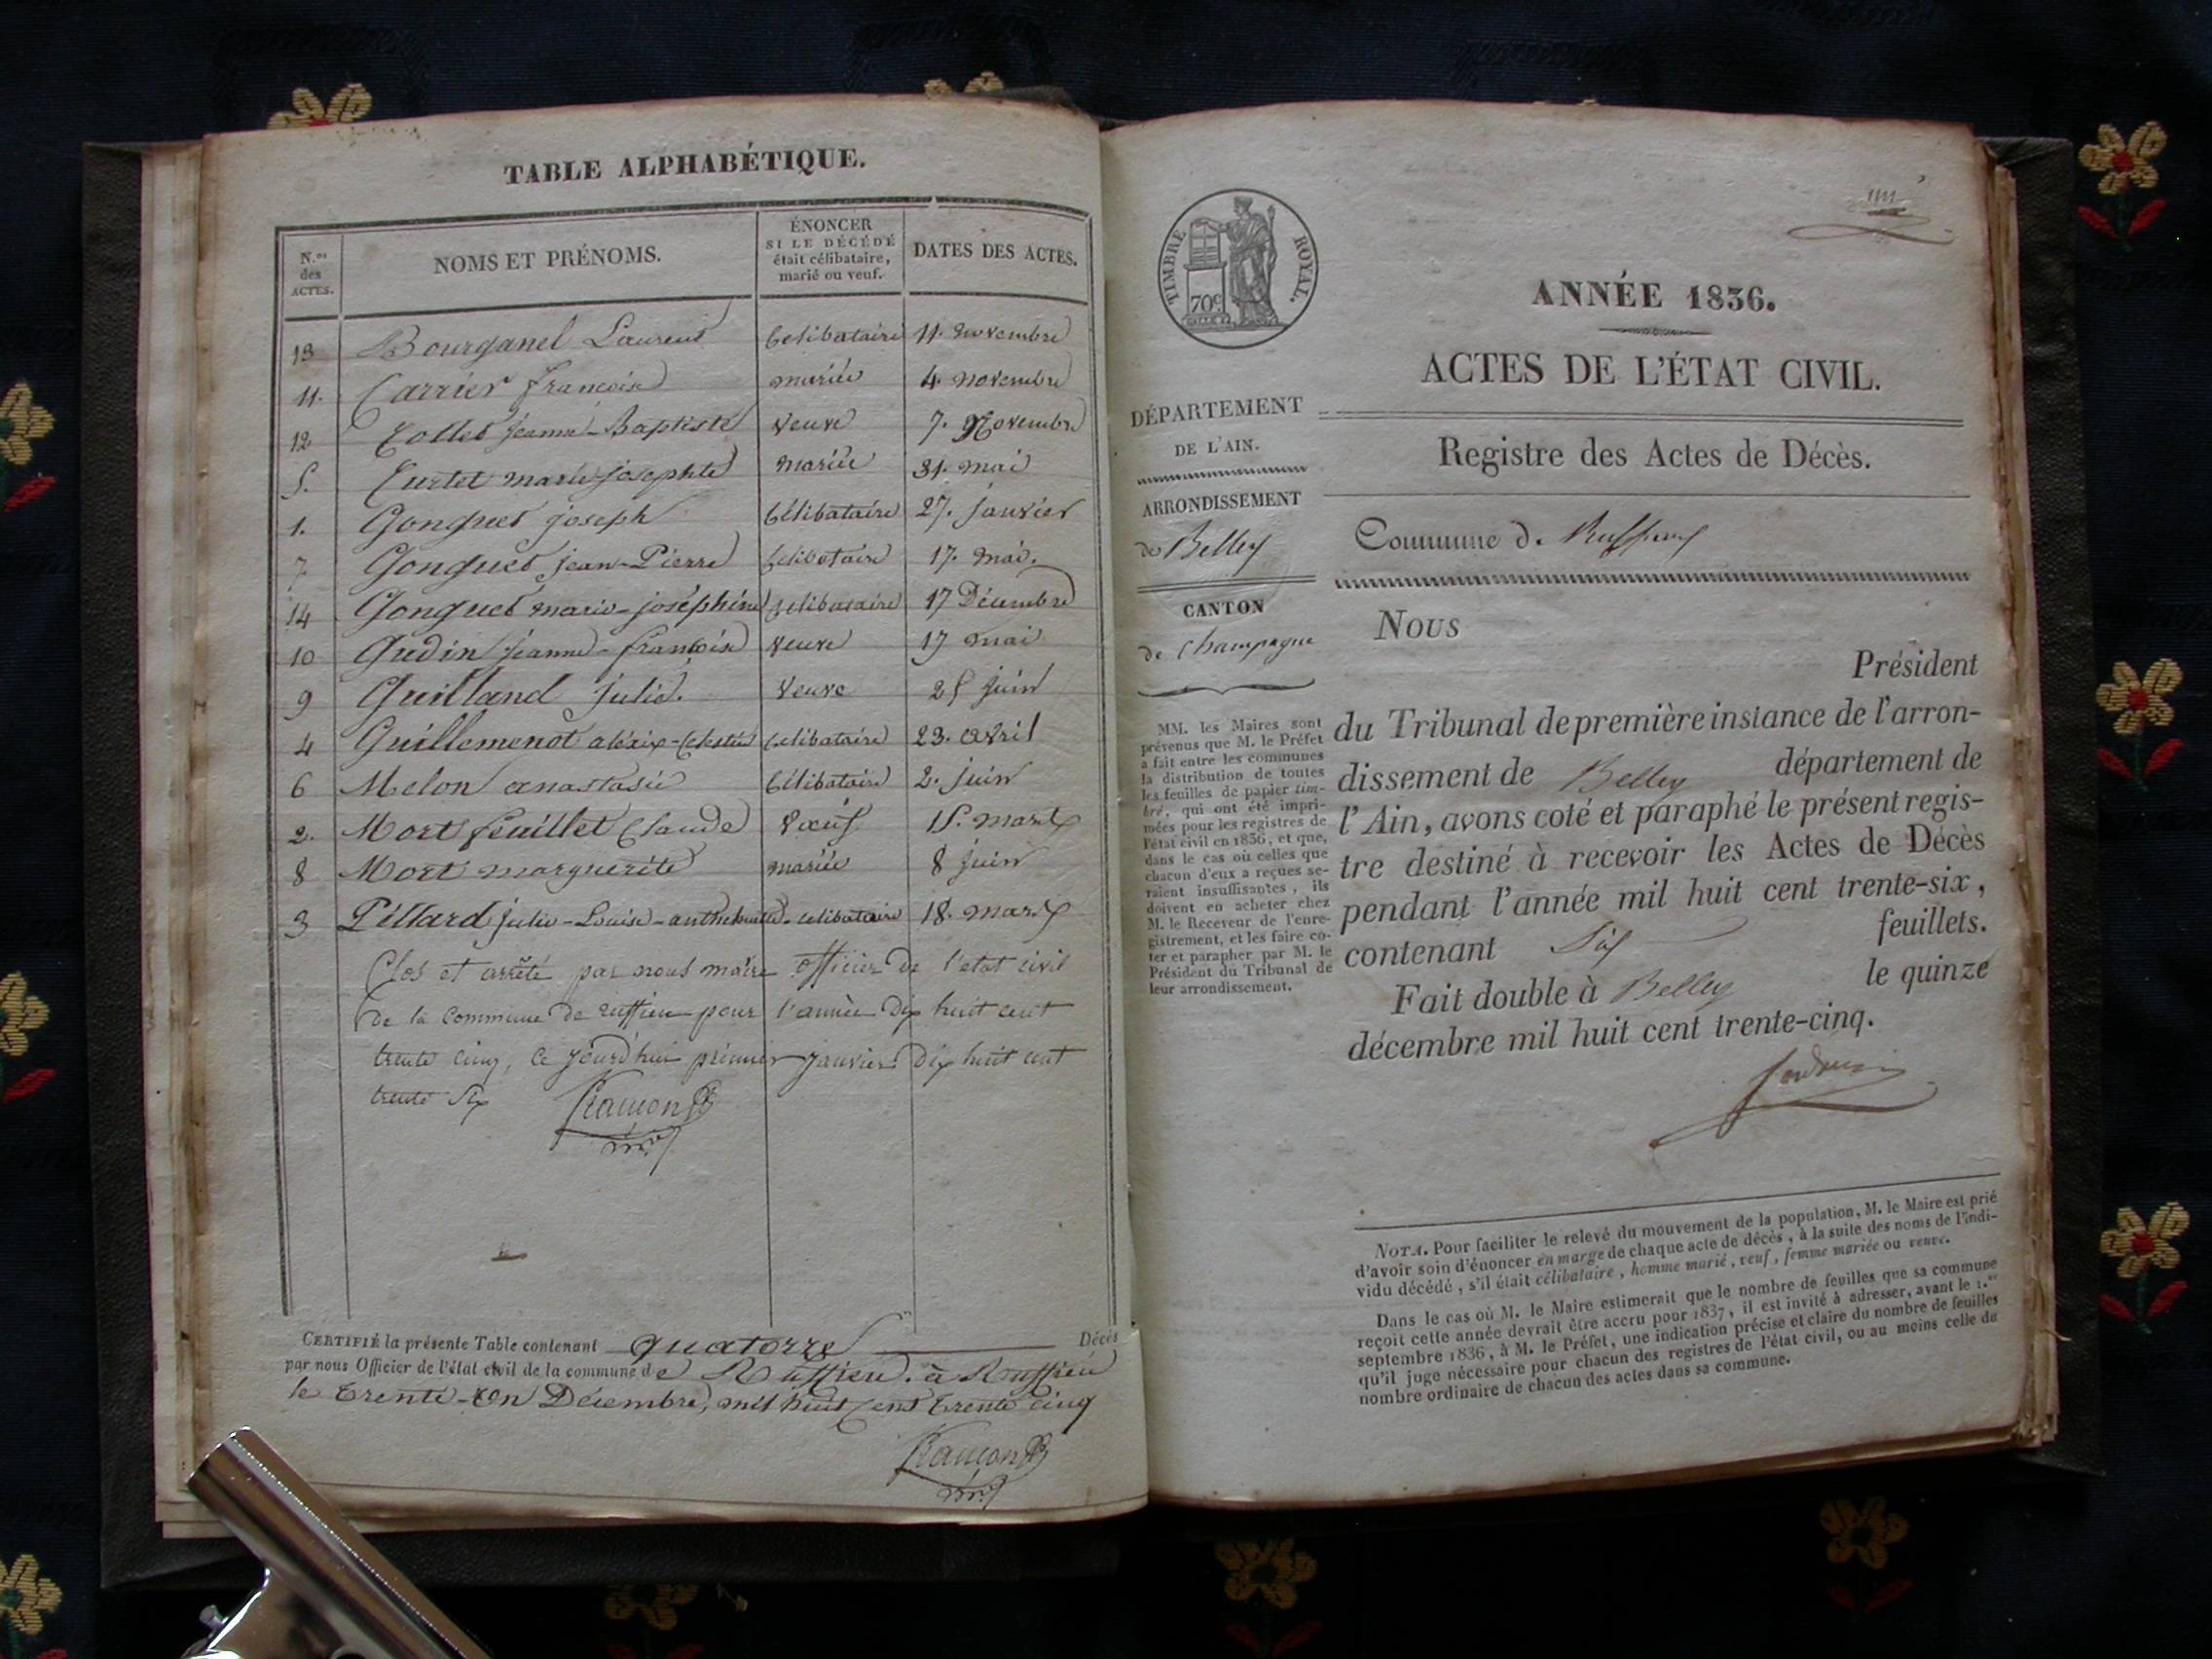 TABLE ALPHABÉTIQUE.
N.os des ACTES.
NOMS ET PRÉNOMS.
ÉNONCER SI LE DÉCÉDÉ était célibataire, marié ou veuf.
DATES DES ACTES.
13 Bourganel Laurent Celibataire 11. novembre
11. Carrier françoise mariée 4. novembre
12 Collet jeanne-Baptiste veuve 7. Novembre
5. Curtet marie josephte mariée 31. mai
1. Gonguet joseph Célibataire 27. janvier
7 Gonguet jean-Pierre Celibataire 17. mai.
14 Gonguet marie-joséphine Celibataire 17 Décembre
10 Gudin jeanne-françoise veuve 17 mai
9 Guilland julie. Veuve 25 juin
4 Guillemenot Celibataire 23. avril
6 Melon anastasie Célibataire 2. juin
2. Mortfeuillet Claude Vœuf 15. mars
8 Mort marguerite mariée 8 juin
3 Pillard julie-Louise- celibataire 18. mars
Clos et arrêté par nous maire officier de l'etat civil
de la commune de ruffieu pour l'année dix huit cent
trente cinq, ce jourd'hui premier janvier dix huit cent
trente six
CERTIFIÉ la présente Table contenant quatorze Décès
par nous Officier de l'état civil de la commune de Ruffieu. à Ruffieu
le trente-un Décembre, mil huit cent trente cinq
TIMBRE ROYAL.
70c.
ANNÉE 1836.
ACTES DE L'ÉTAT CIVIL.
DÉPARTEMENT
DE L'AIN.
ARRONDISSEMENT
de Belley
CANTON
de Champagne
MM. les Maires sont
prévenus que M. le Préfet
a fait entre les communes
la distribution de toutes
les feuilles de papier tim-
bré, qui ont été impri-
mées pour les registres de
l'état civil en 1836, et que,
dans le cas où celles que
chacun d'eux a reçues se-
raient insuffisantes, ils
doivent en acheter chez
M. le Receveur de l'enre-
gistrement, et les faire co-
ter et parapher par M. le
Président du Tribunal de
leur arrondissement.
Registre des Actes de Décès.
Commune de Ruffieu
Nous
Président
du Tribunal de première instance de l'arron-
dissement de Belley département de
l'Ain, avons coté et paraphé le présent regis-
tre destiné à recevoir les Actes de Décès
pendant l'année mil huit cent trente-six,
contenant Six feuillets.
Fait double à Belley le quinze
décembre mil huit cent trente-cinq.
NOTA. Pour faciliter le relevé du mouvement de la population, M. le Maire est prié
d'avoir soin d'énoncer en marge de chaque acte de décès, à la suite des noms de l'indi-
vidu décédé, s'il était célibataire, homme marié, veuf, femme mariée ou veuve.
Dans le cas où M. le Maire estimerait que le nombre de feuilles que sa commune
reçoit cette année devrait être accru pour 1837, il est invité à adresser, avant le 1.er
septembre 1836, à M. le Préfet, une indication précise et claire du nombre de feuilles
qu'il juge nécessaire pour chacun des registres de l'état civil, ou au moins celle du
nombre ordinaire de chacun des actes dans sa commune.